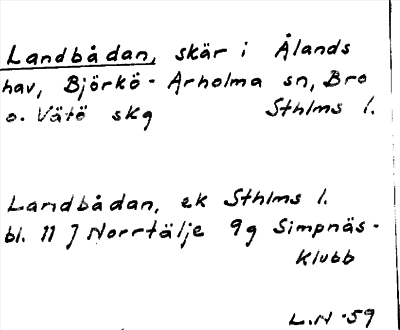 Landbådan, skär i Ålands
hav, Björkö-Arholma sn, Bro
o. Vätö skg Sthlms l.
Landbådan, ek Sthlms l.
bl. 11 J Norrtälje 9g Simpnäs-
klubb
L.N -59